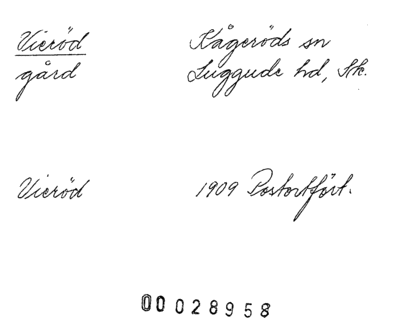 Vieröd Kågeröds sn
gård Luggude hd, Sk.
Vieröd 1909 Postortfört.
00028958